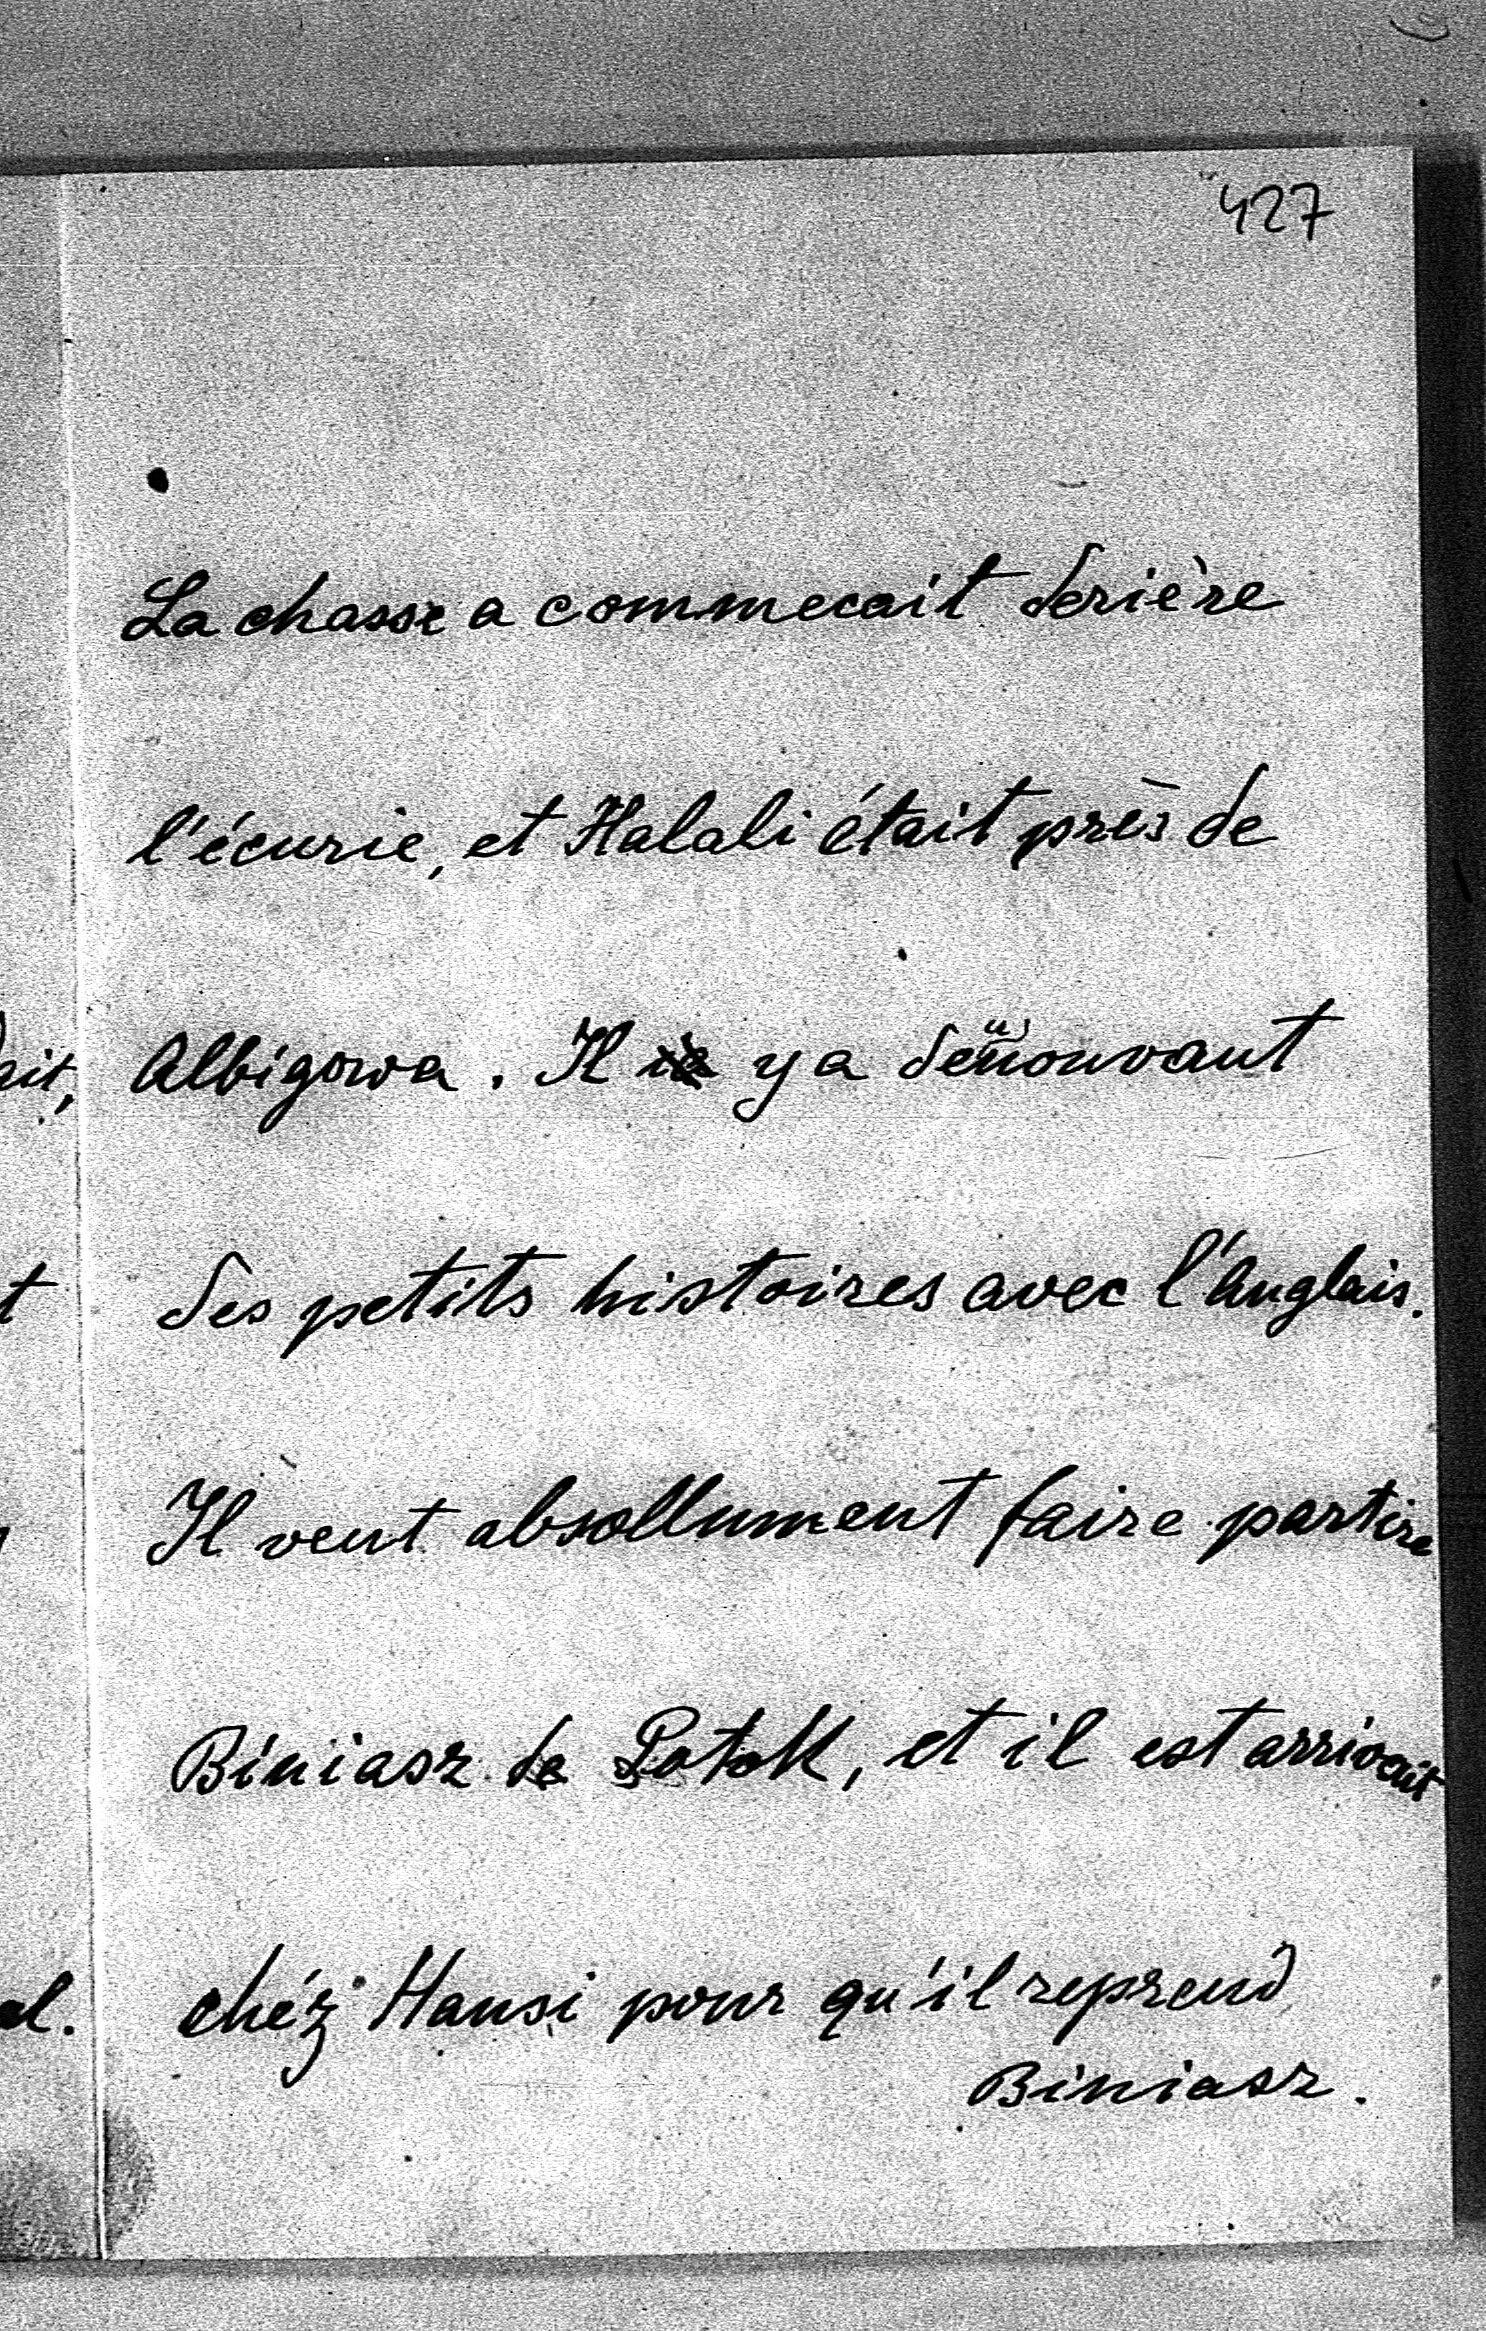 427
La chasse a commecait derière
l'écurie, et Halali était près de
ait, Albigowa. Il y a denouvant
t des petits histoires avec l'Anglais.
Il veut absollument faire partire
Biniasz de Potok, et il est arrivait
al. chéz Hansi pour qu'il reprend
Biniasz.